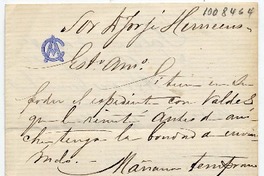 1008464
Sor Dn Jorje Herreros
Esto Amo.
Si tiene en su
poder el espediente con Valdes
que le remití antes de ano
che tenga la bondad de envia
rmelo. Mañana temprano